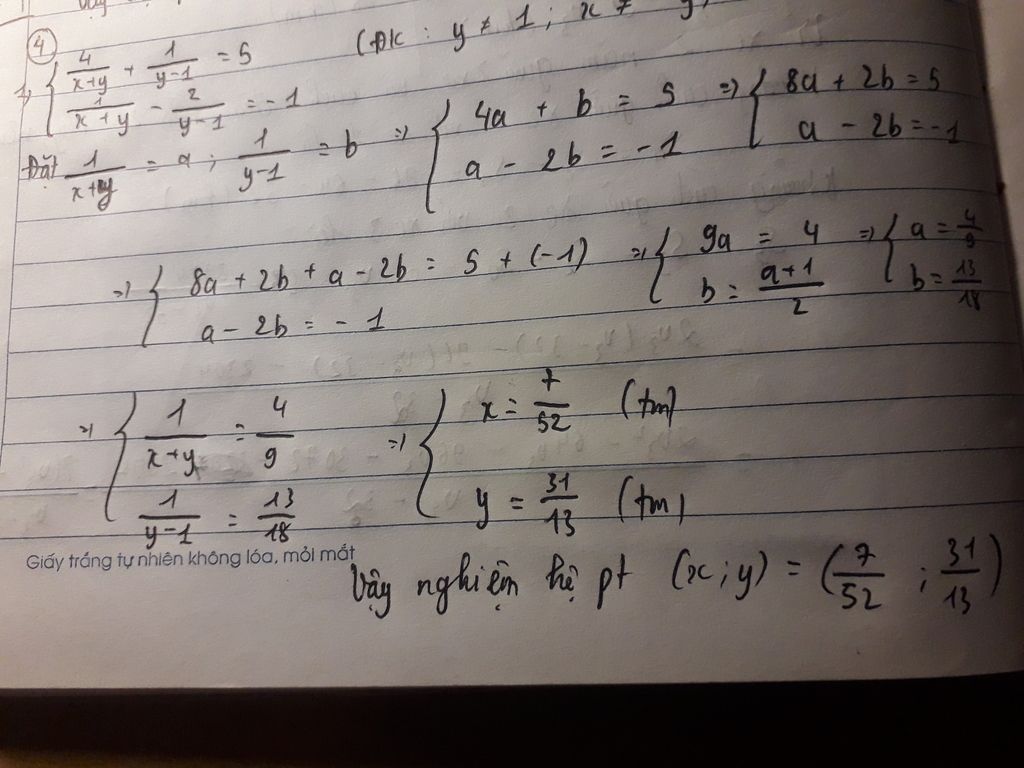 ④ (ĐK : y ≠ 1 ; x ≠ y)
1, { 4/(x+y) + 1/(y-1) = 5
1/(x+y) - 2/(y-1) = -1
Đặt 1/(x+y) = a ; 1/(y-1) = b => { 4a + b = 5 => { 8a + 2b = 5
a - 2b = -1 a - 2b = -1
=> { 8a + 2b + a - 2b = 5 + (-1) => { 9a = 4 => { a = 4/9
a - 2b = -1 b = (a+1)/2 b = 13/18
=> { 1/(x+y) = 4/9 => { x = 7/52 (tm)
1/(y-1) = 13/18 y = 31/13 (tm)
Giấy trắng tự nhiên không lóa, mỏi mắt
Vậy nghiệm hệ pt (x ; y) = (7/52 ; 31/13)